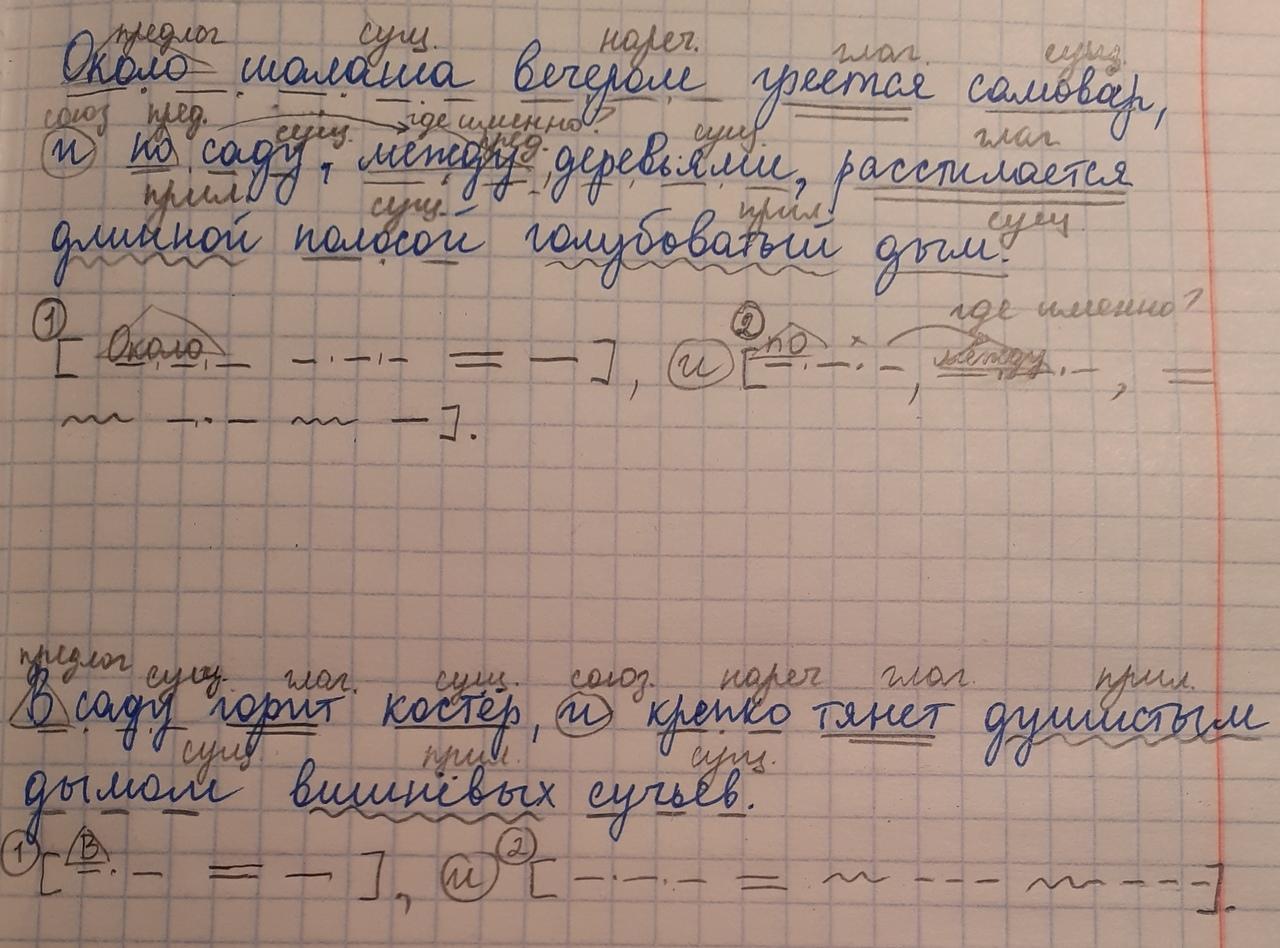 предлог сущ. нареч. глаг. сущ.
Около шалаша вечером греется самовар,
союз пред. сущ. где именно? пред. сущ. глаг
и по саду, между деревьями, расстилается
прил. сущ. прил. сущ
длинной полосой голубоватый дым.
1 2 где именно?
[ Около ], и [ по , между ,
].
предлог сущ. глаг. сущ. союз. нареч глаг. прил.
В саду горит костёр, и крепко тянет душистым
сущ прил. сущ.
дымом вишнёвых сучьев.
1 [ В ], и 2 [ ].